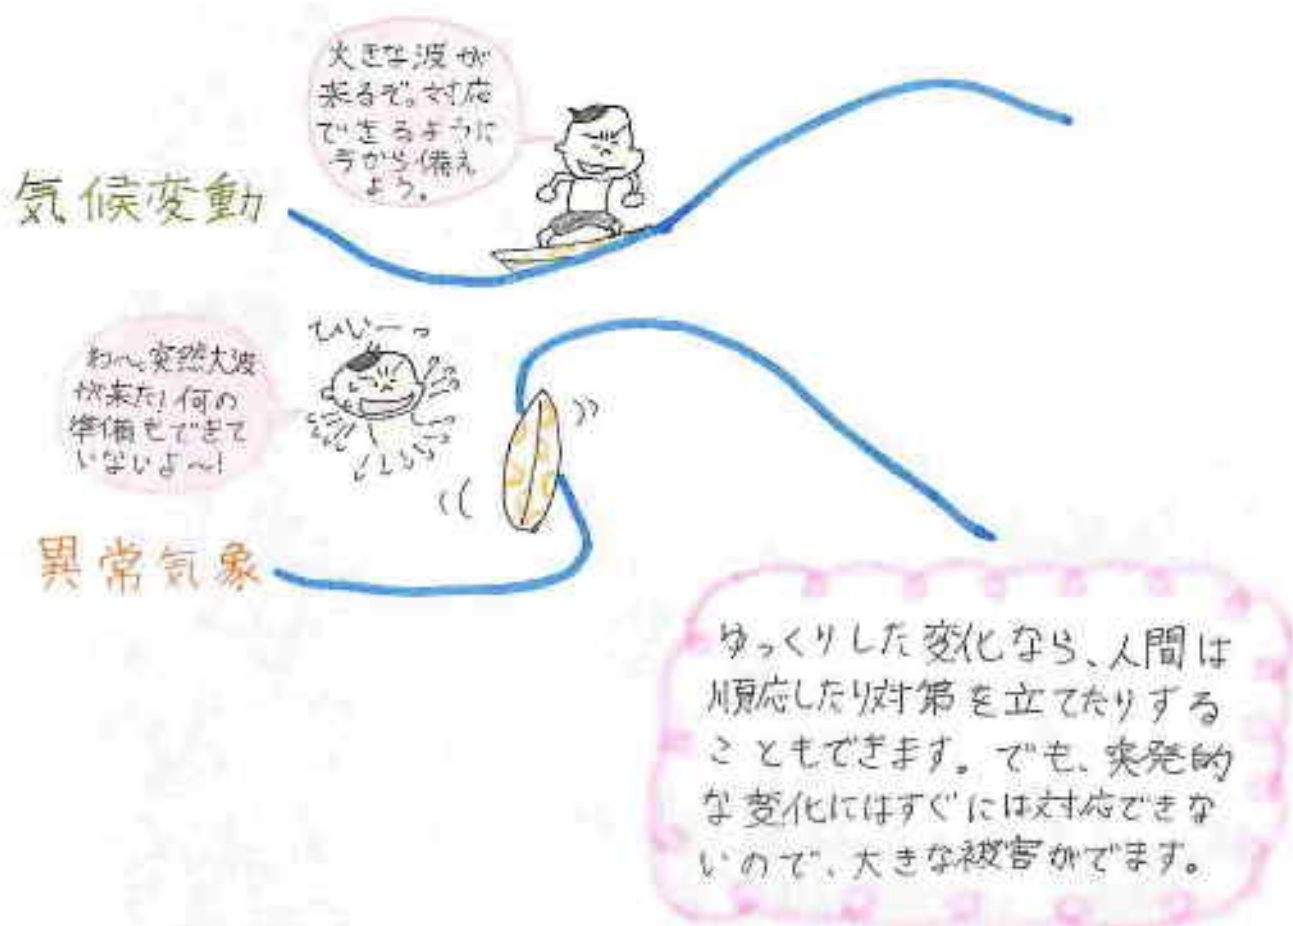 大きな波が
来るぞ。対応
できるように
今から備え
よう。
気候変動
ひいーっ
わ〜、突然大波
が来た!何の
準備もできて
いないよ〜!
異常気象
ゆっくりした変化なら、人間は
順応したり対第を立てたりする
こともできます。でも、突発的
な変化にはすぐには対応できな
いので、大きな被害がでます。